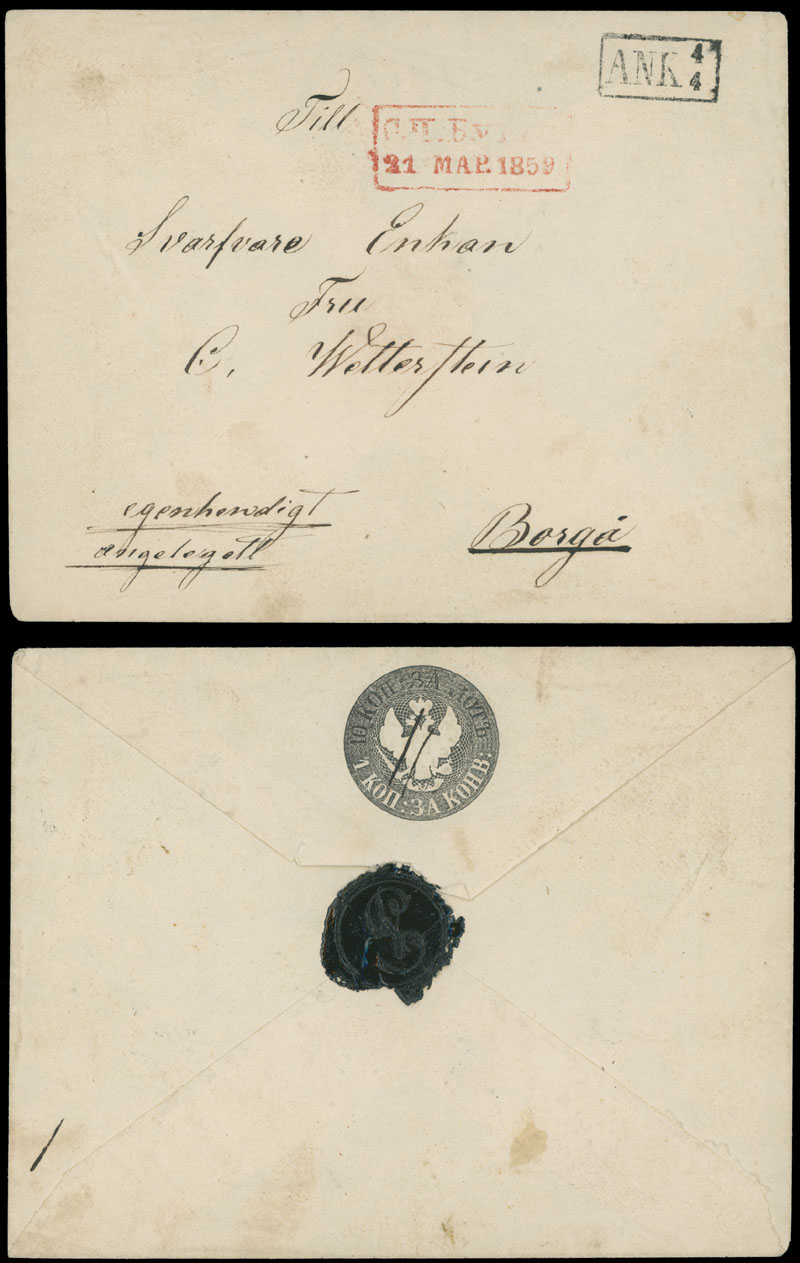 ANK 4/4
Till
С.П.Б.
21 МАР. 1859
Svarfvare Enkan
Fru
C. Wetterstein
egenhendigt
angelegett
Borgå
10 КОП: ЗА ЛОТЪ
1 КОП: ЗА КОНВ: